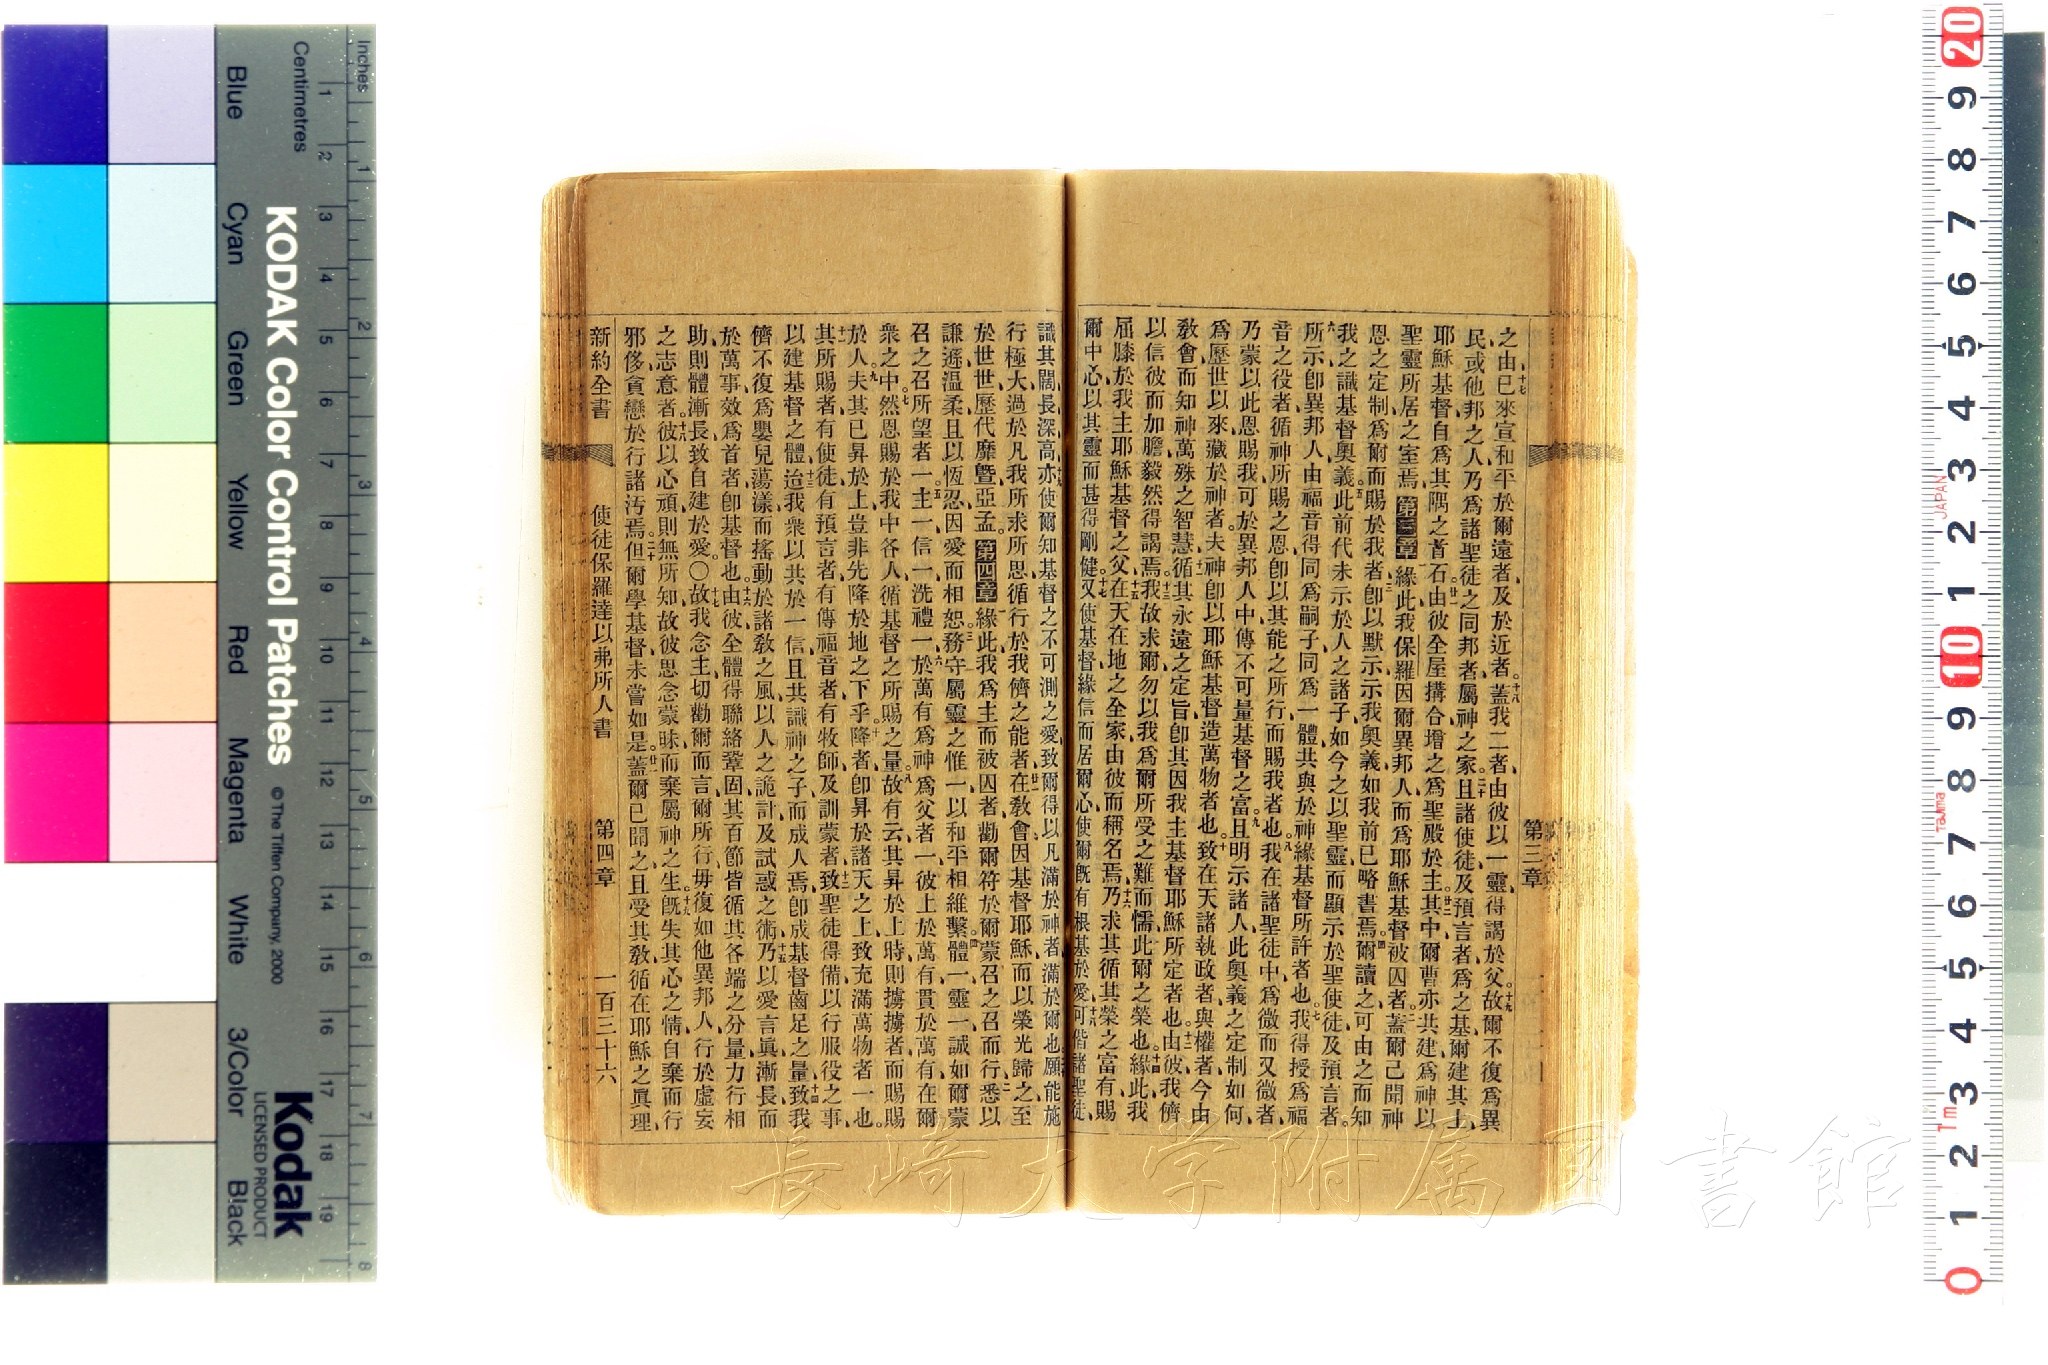 第三章
之由巳來宣和平於爾遠者及於近者蓋我二者由彼以一靈得謁於父故爾不復爲異
民或他邦之人乃爲諸聖徒之同邦者屬神之家且諸使徒及預言者爲之基爾建其上
耶穌基督自爲其隅之首石由彼全屋搆合增之爲聖殿於主其中爾曹亦共建爲神以
聖靈所居之室焉第三章緣此我保羅因爾異邦人而爲耶穌基督被囚者蓋爾已聞神
恩之定制爲爾而賜於我者卽以默示示我奧義如我前巳略書焉爾讀之可由之而知
我之識基督奧義此前代未示於人之諸子如今之以聖靈而顯示於聖使徒及預言者
所示卽異邦人由福音得同爲嗣子同爲一體共與於神緣基督所許者也我得授爲福
音之役者循神所賜之恩卽以其能之所行而賜我者也我在諸聖徒中爲微而又微者
乃蒙以此恩賜我可於異邦人中傳不可量基督之富且明示諸人此奧義之定制如何
爲歷世以來藏於神者夫神卽以耶穌基督造萬物者也致在天諸執政者與權者今由
敎會而知神萬殊之智慧循其永遠之定旨卽其因我主基督耶穌所定者也由彼我儕
以信彼而加膽毅然得謁焉我故求爾勿以我爲爾所受之難而懦此爾之榮也緣此我
屈膝於我主耶穌基督之父在天在地之全家由彼而稱名焉乃求其循其榮之富有賜
爾中心以其靈而甚得剛健又使基督緣信而居爾心使爾旣有根基於愛可偕諸聖徒
識其闊長深高亦使爾知基督之不可測之愛致爾得以凡滿於神者滿於爾也願能施
行極大過於凡我所求所思循行於我儕之能者在敎會因基督耶穌而以榮光歸之至
於世世歷代靡曁亞孟第四章緣此我爲主而被囚者勸爾符於爾蒙召之召而行悉以
謙遜温柔且以恆忍因愛而相恕務守屬靈之惟一以和平相維繫體一靈一誠如爾蒙
召之召所望者一主一信一洗禮一於萬有爲神爲父者一彼上於萬有貫於萬有在爾
衆之中然恩賜於我中各人循基督之所賜之量故有云其昇於上時則擄擄者而賜賜
於人夫其已昇於上豈非先降於地之下乎降者卽昇於諸天之上致充滿萬物者一也
其所賜者有使徒有預言者有傳福音者有牧師及訓蒙者致聖徒得備以行服役之事
以建基督之體迨我衆以共於一信且共識神之子而成人焉卽成基督齒足之量致我
儕不復爲嬰兒蕩漾而搖動於諸敎之風以人之詭計及試惑之術乃以愛言眞漸長而
於萬事效爲首者卽基督也由彼全體得聯絡鞏固其百節皆循其各端之分量力行相
助則體漸長致自建於愛〇故我念主切勸爾而言爾所行毋復如他異邦人行於虛妄
之志意者彼以心頑則無所知故彼思念蒙昧而棄屬神之生旣失其心之情自棄而行
邪侈貪戀於行諸汚焉但爾學基督未嘗如是蓋爾巳聞之且受其敎循在耶穌之眞理
新約全書　使徒保羅達以弗所人書　第四章　一百三十六
Inches
Centimetres
Blue Cyan Green Yellow Red Magenta White 3/Color Black
KODAK Color Control Patches © The Tiffen Company, 2000
Kodak
LICENSED PRODUCT
JAPAN
Tajima
長崎大学附属図書館